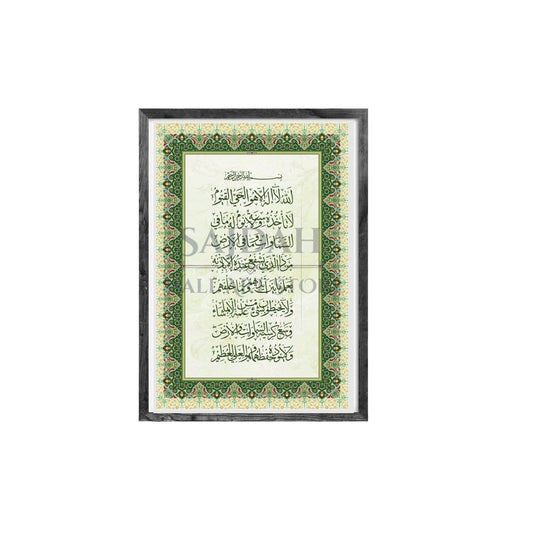 بسم الله الرحمن الرحيم
الله لا إله إلا هو الحي القيوم
لا تأخذه سنة ولا نوم له ما في
السماوات وما في الأرض
من ذا الذي يشفع عنده إلا بإذنه
يعلم ما بين أيديهم وما خلفهم
ولا يحيطون بشيء من علمه إلا بما شاء
وسع كرسيه السماوات والأرض
ولا يئوده حفظهما وهو العلي العظيم
SAJDAH